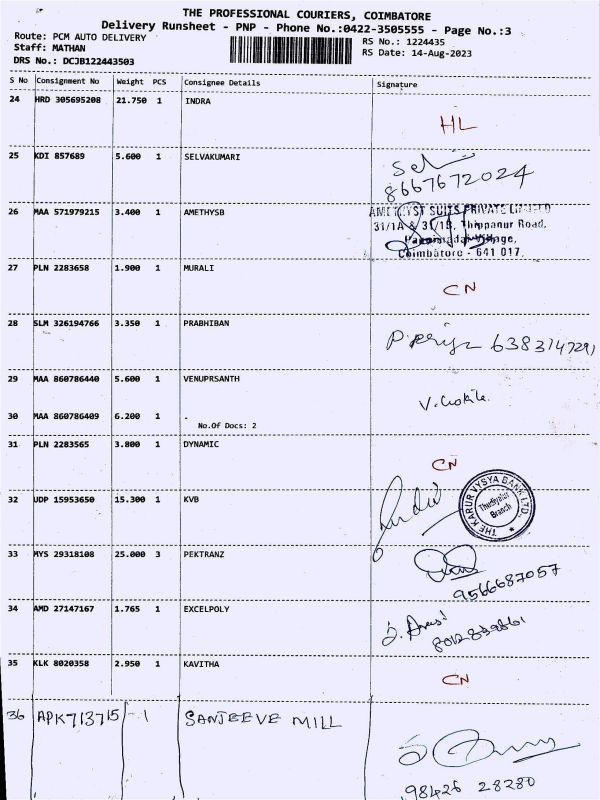 THE PROFESSIONAL COURIERS, COIMBATORE
Delivery Runsheet - PNP - Phone No.:0422-3505555 - Page No.:3
Route: PCM AUTO DELIVERY RS No.: 1224435
Staff: MATHAN RS Date: 14-Aug-2023
DRS No.: DCJB122443503
S No Consignment No Weight PCS Consignee Details Signature
24 HRD 305695208 21.750 1 INDRA
HL
25 KDI 857689 5.600 1 SELVAKUMARI
Sel
8667672024
26 MAA 571979215 3.400 1 AMETHYSB
AMETHYST SUITS PRIVATE LIMITED
31/1A & 31/1B, Thippanur Road,
Coimbatore - 641 017.
27 PLN 2283658 1.900 1 MURALI
CN
28 SLM 326194766 3.350 1 PRABHIBAN
P.Priya 6383147291
29 MAA 860786440 5.600 1 VENUPRSANTH
V. Kokila
30 MAA 860786409 6.200 1 -
No.Of Docs: 2
31 PLN 2283565 3.800 1 DYNAMIC
CN
32 UDP 15953650 15.300 1 KVB
THE KARUR VYSYA BANK LTD.
Thudiyalur
Branch
33 MYS 29318108 25.000 3 PEKTRANZ
9566687057
34 AMD 27147167 1.765 1 EXCELPOLY
35 KLK 8020358 2.950 1 KAVITHA
CN
36 APK713715/-1 SANJEEVE MILL
98426 28280